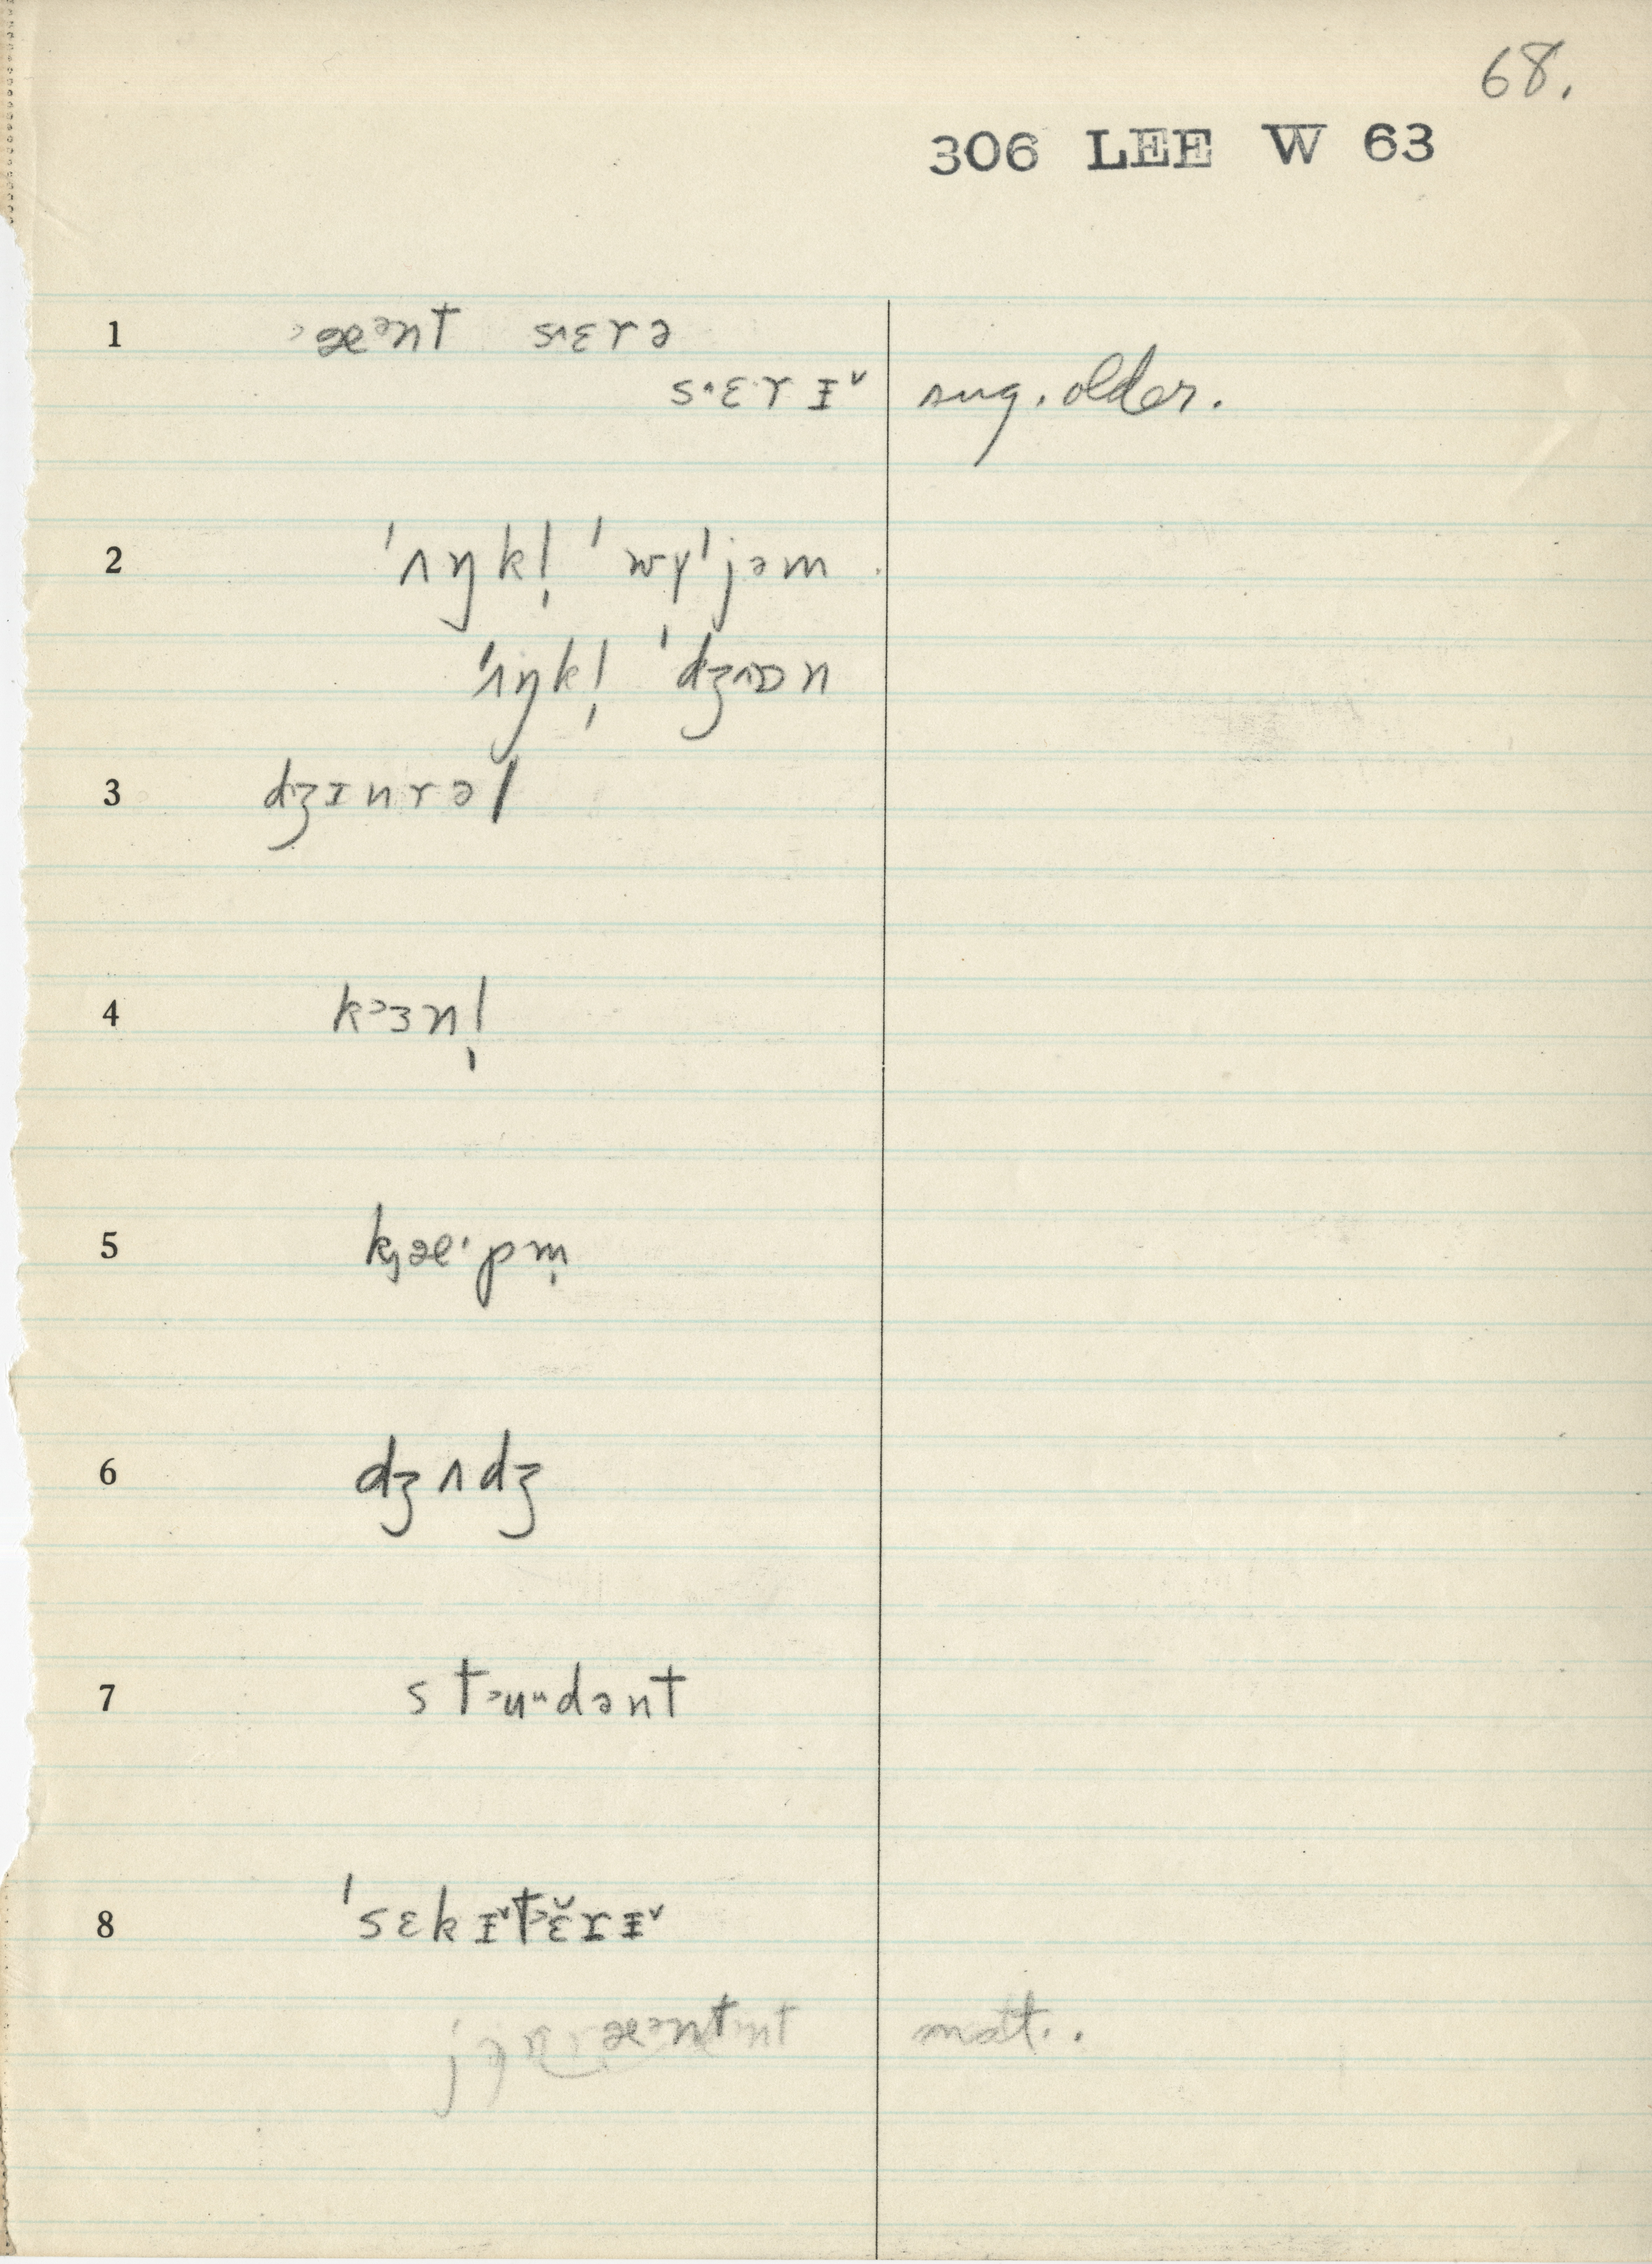 68.
306 LEE W 63
1 ᵊæᵊnt sᵊɛrə
sᵊɛ·rɪ̵ˇ sug. older.
2 ˈʌŋkl̩ ˈwɪˈjəm
ˈʌŋkl̩ ˈdʒɒn
3 dʒɪnrəl
4 kᵊɜnl̩
5 kjæ·pm̩
6 dʒʌdʒ
7 stᵊuᵘdənt
8 ˈsɛkɪ̵ˇtᵊɛ̆rɪ̵ˇ
æᵊnt